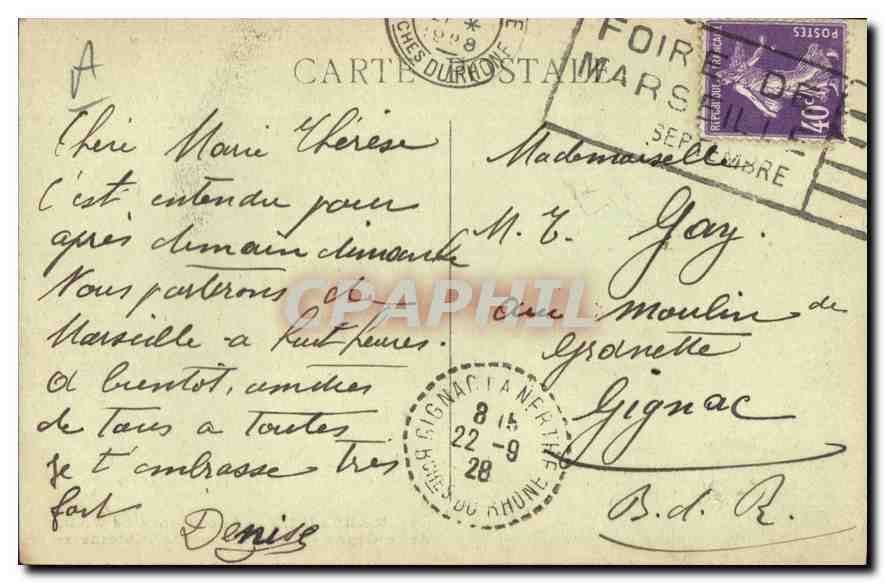 A
1928
CHES DU RHONE
FOIRE DE
MARSEILLE
SEPTEMBRE
REPUBLIQUE FRANÇAISE
POSTES
40c
CARTE POSTALE
Chère Marie Thérèse
C'est entendu pour
après demain dimanche
Nous partirons de
Marseille a huit heures.
A bientôt, amitiés
de tous a toutes
Je t'embrasse très
fort
Denise
Mademoiselle
M. T. Gay.
au moulin de
Granette
Gignac
B. d. R.
GIGNAC LA NERTHE
8 15
22 - 9
28
BCHES DU RHONE
CPAPHIL